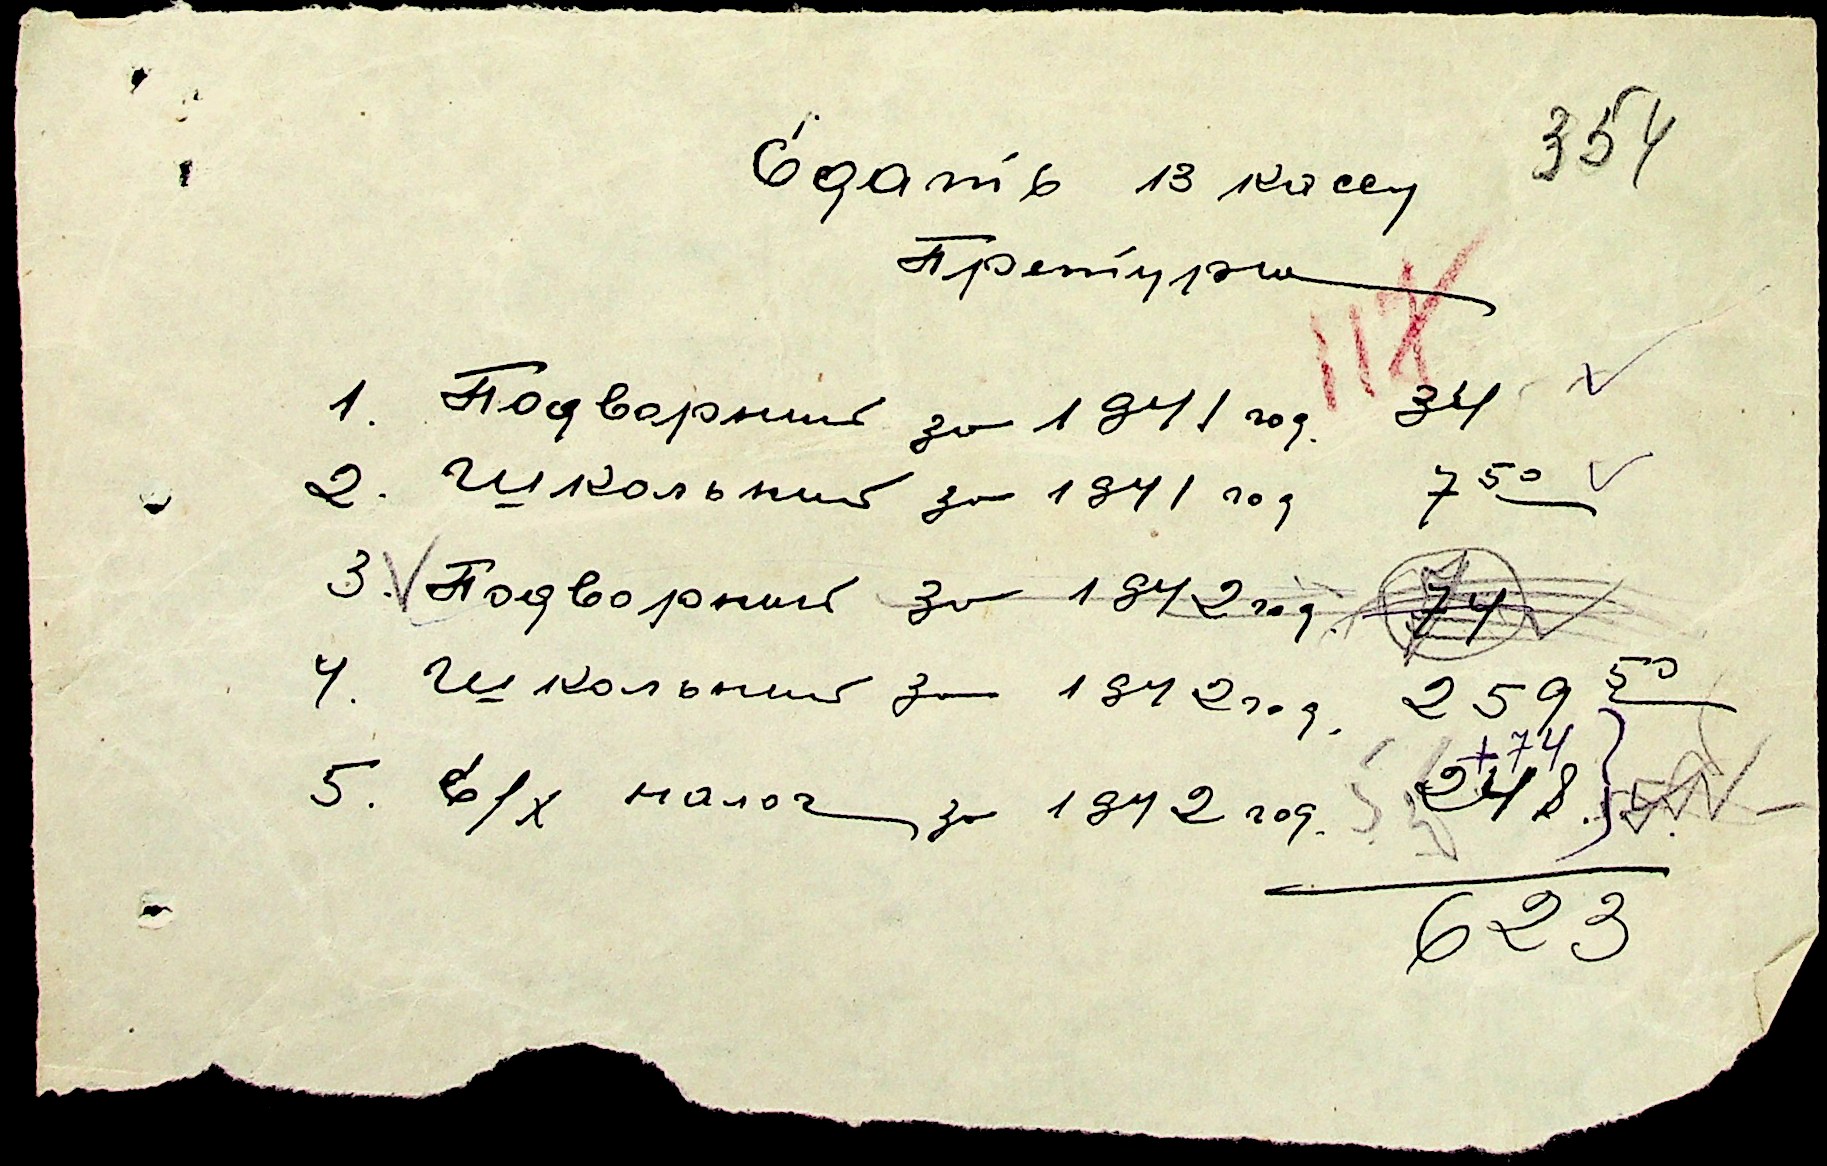 354
Сдать в кассу
Претуры
117
1. Подворный за 1941 год. 34
2. Школьный за 1941 год 7 50
3. Подворный за 1942 год. 74
4. Школьный за 1942 год. 259 50
+74
5. С/х налог за 1942 год. 248.
623